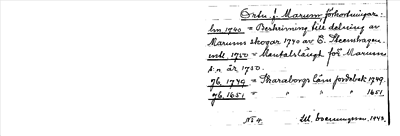 Extr. f. Marums förkortningar:
lm 1740 = Beskrivning till delning av
Marums skogar 1740 av E. Steenhagen.
mtl. 1750 = Mantalslängd för Marums
s:n år 1750.
jb. 1749 = Skaraborgs läns jordebok 1749.
jb. 1651 = " " " 1651.
No 4. 1943.